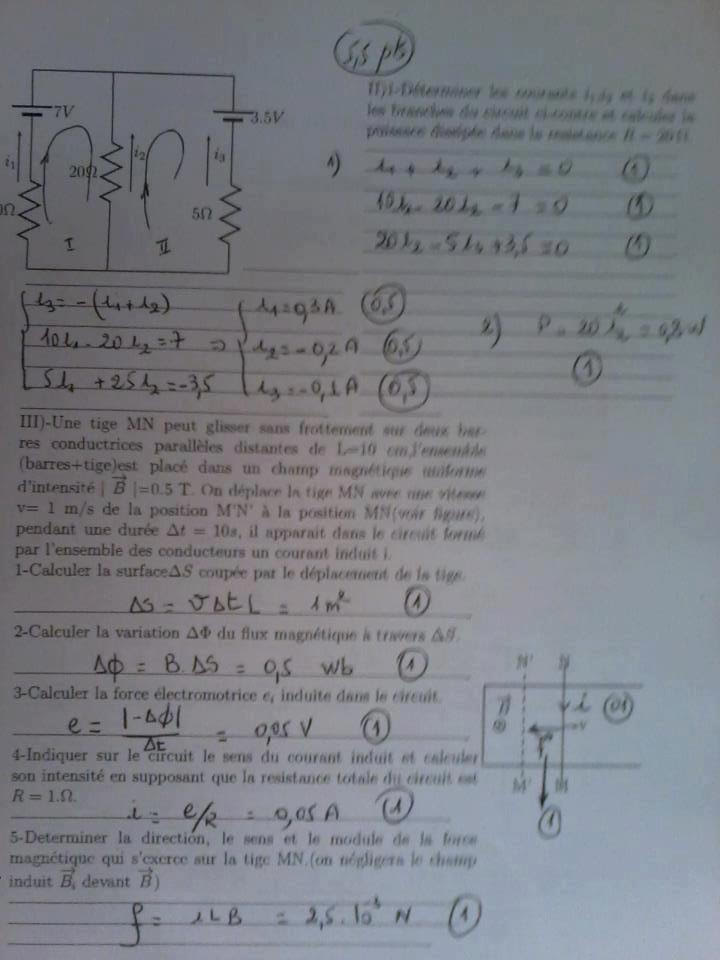 5,5 pts
7V
3.5V
i₁
20Ω
i₂
i₃
5Ω
I
II
II)1-Déterminer les courants i₁,i₂ et i₃ dans
les branches du circuit ci-contre et calculer la
puissance dissipée dans la resistance R = 20Ω.
1) i₁ + i₂ + i₃ = 0 (1)
10i₁ - 20i₂ - 7 = 0 (1)
20i₂ - 5i₃ + 3,5 = 0 (1)
i₃ = -(i₁+i₂)
10i₁ - 20i₂ = 7
5i₁ + 25i₂ = -3,5
⇒
i₁ = 0,3 A (0,5)
i₂ = -0,2 A (0,5)
i₃ = -0,1 A (0,5)
2) P = 20 i₂² = 0,8 W
(1)
III)-Une tige MN peut glisser sans frottement sur deux bar-
res conductrices parallèles distantes de L=10 cm,l'ensemble
(barres+tige)est placé dans un champ magnétique uniforme
d'intensité | B⃗ |=0.5 T. On déplace la tige MN avec une vitesse
v= 1 m/s de la position M'N' à la position MN(voir figure),
pendant une durée Δt = 10s, il apparait dans le circuit formé
par l'ensemble des conducteurs un courant induit i.
1-Calculer la surfaceΔS coupée par le déplacement de la tige.
ΔS = vΔt L = 1 m² (1)
2-Calculer la variation ΔΦ du flux magnétique à travers ΔS.
Δϕ = B.ΔS = 0,5 wb (1)
3-Calculer la force électromotrice eᵢ induite dans le circuit.
e = |-Δϕ| / Δt = 0,05 V (1)
4-Indiquer sur le circuit le sens du courant induit et calculer
son intensité en supposant que la resistance totale du circuit est
R = 1.Ω.
i = e/R = 0,05 A (1)
5-Determiner la direction, le sens et le module de la force
magnétique qui s'exerce sur la tige MN.(on négligera le champ
induit B⃗ᵢ devant B⃗)
f = i L B = 2,5.10⁻³ N (1)
N' N
B⃗ i (01)
v
M' M
(1)